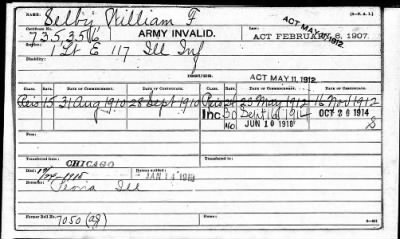 Selby William F
(3-351.)
ACT MAY 11, 1912.
Certificate No.
735356
ARMY INVALID.
ACT FEBRUARY 6, 1907.
Service:
1 Lt E 117 Ill Inf
Disability:
ISSUES:
ACT MAY 11, 1912.
CLASS. RATE. DATE OF CERTIFICATE. DATE OF COMMENCEMENT. CLASS. RATE. DATE OF COMMENCEMENT. DATE OF CERTIFICATE.
15 31 Aug 1910 28 Sept 1910 23 May 1912 16 Nov 1912
Inc 30 Sept 16 1914 OCT 26 1914
JUN 10 1918
From:
Transferred from
CHICAGO
Died
1915
JAN 14 1914
Peoria Ill
Former Roll No. 7050